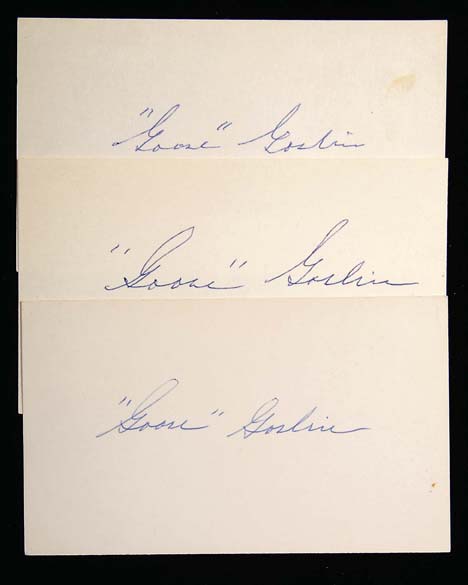 "Goose" Goslin
"Goose" Goslin
"Goose" Goslin